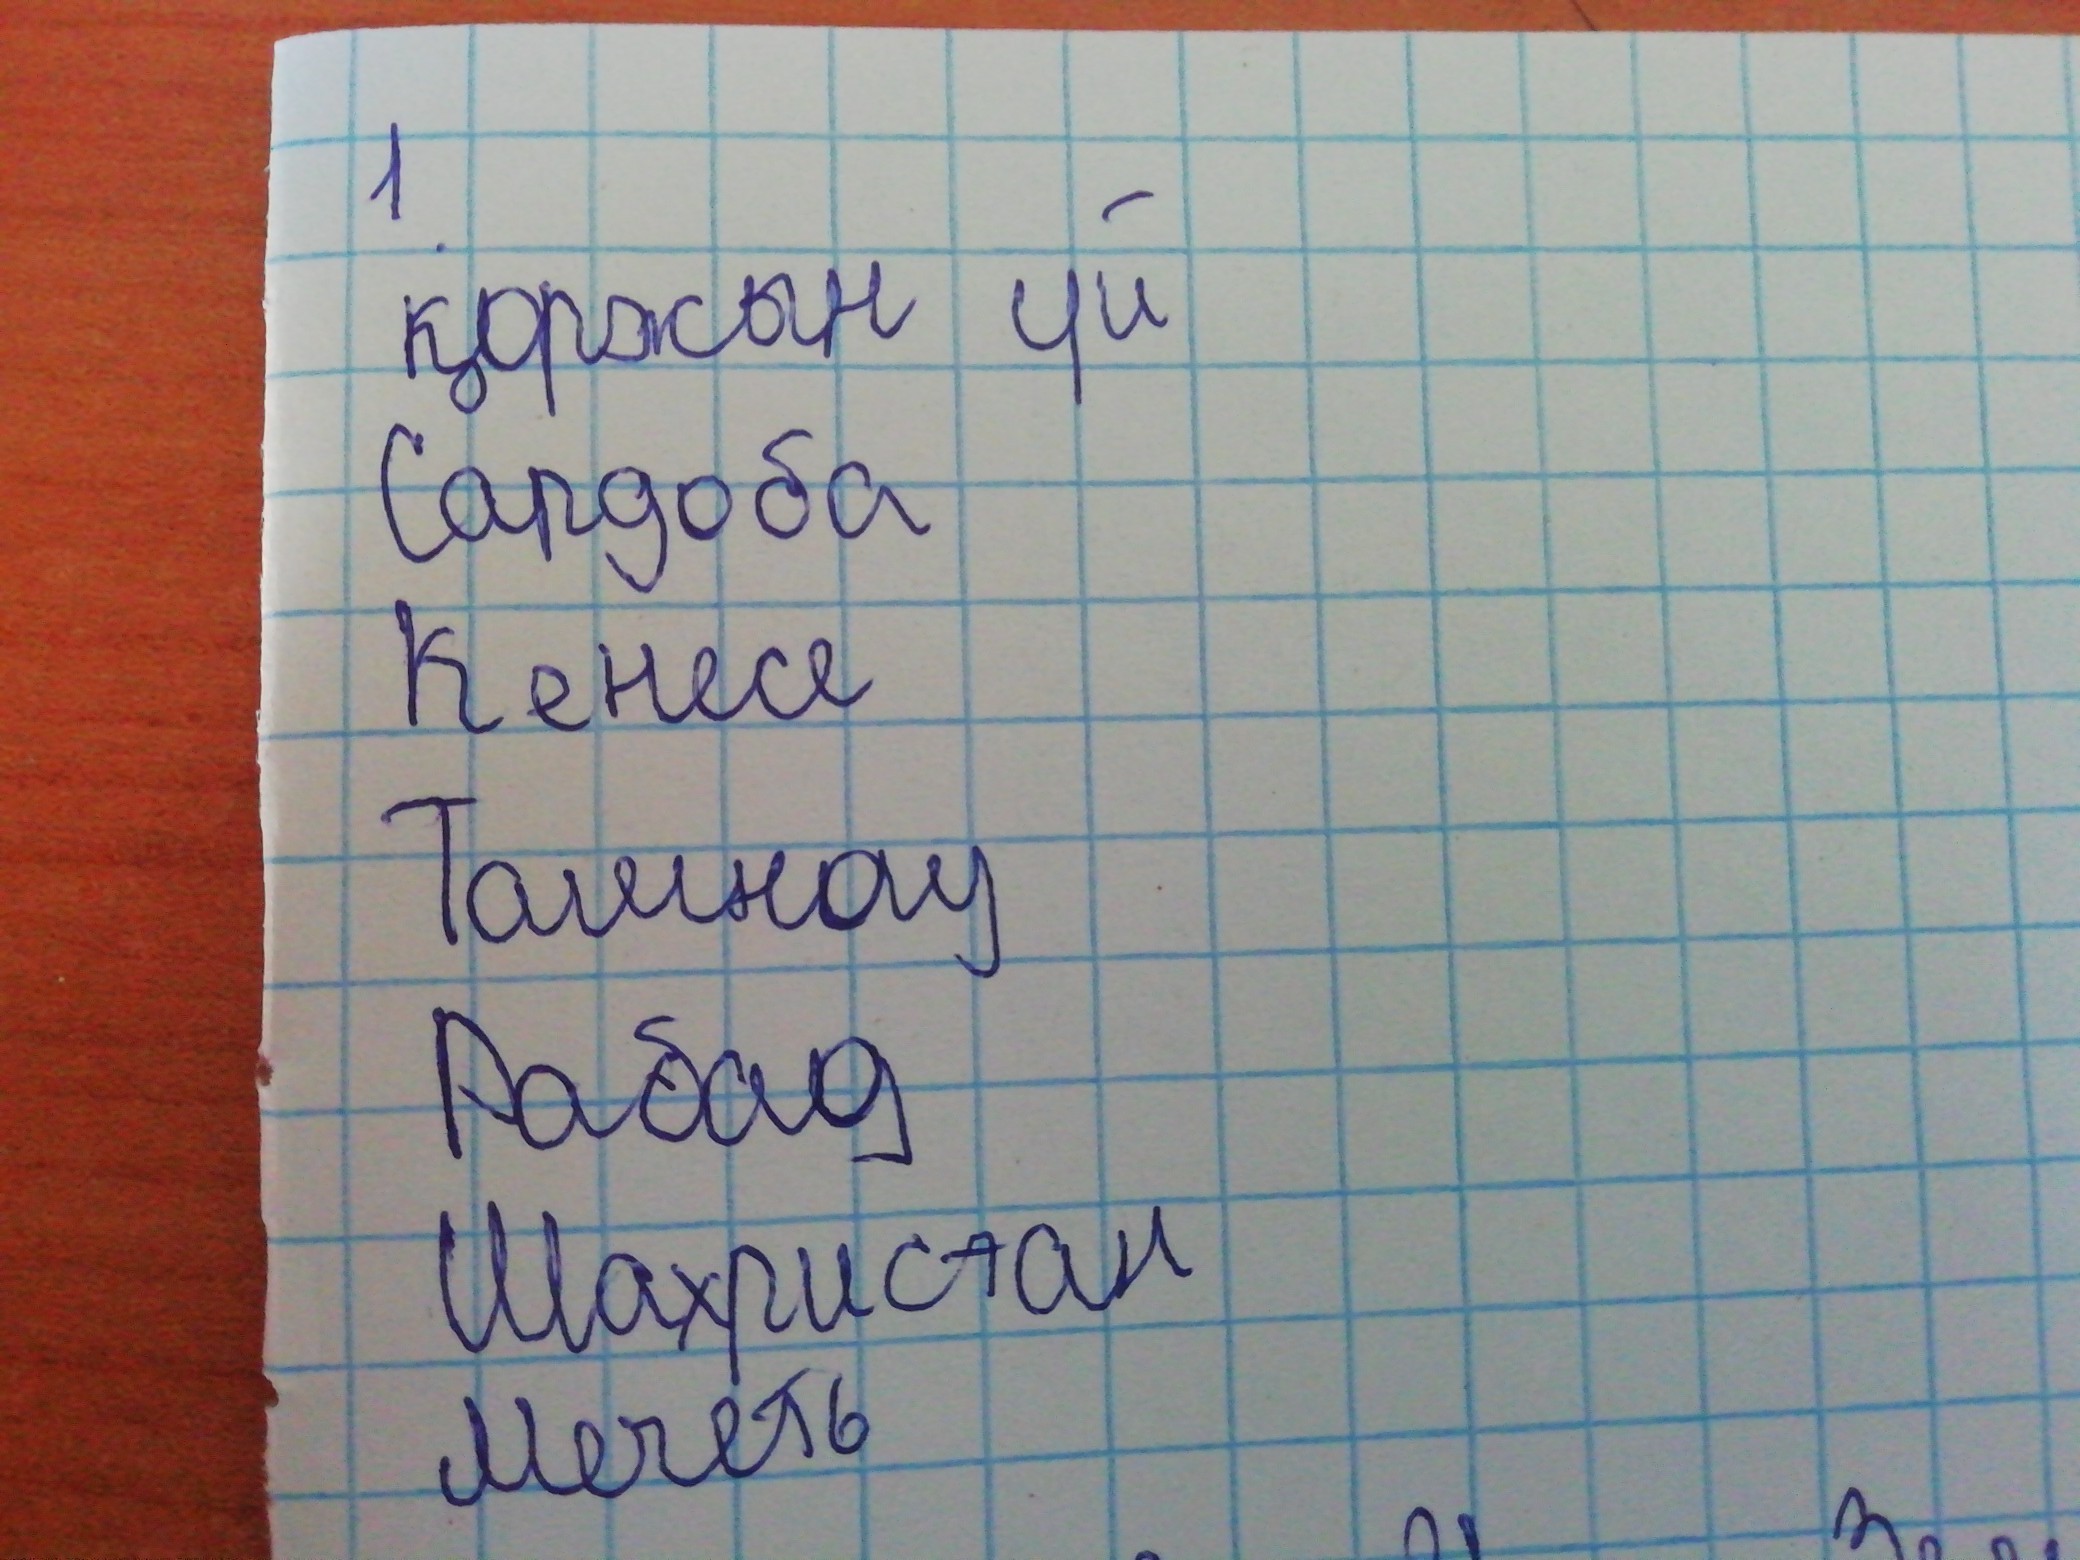 1
қоржын үй
Сардоба
Кенесе
Ташнау
Рабад
Шахристан
Мечеть